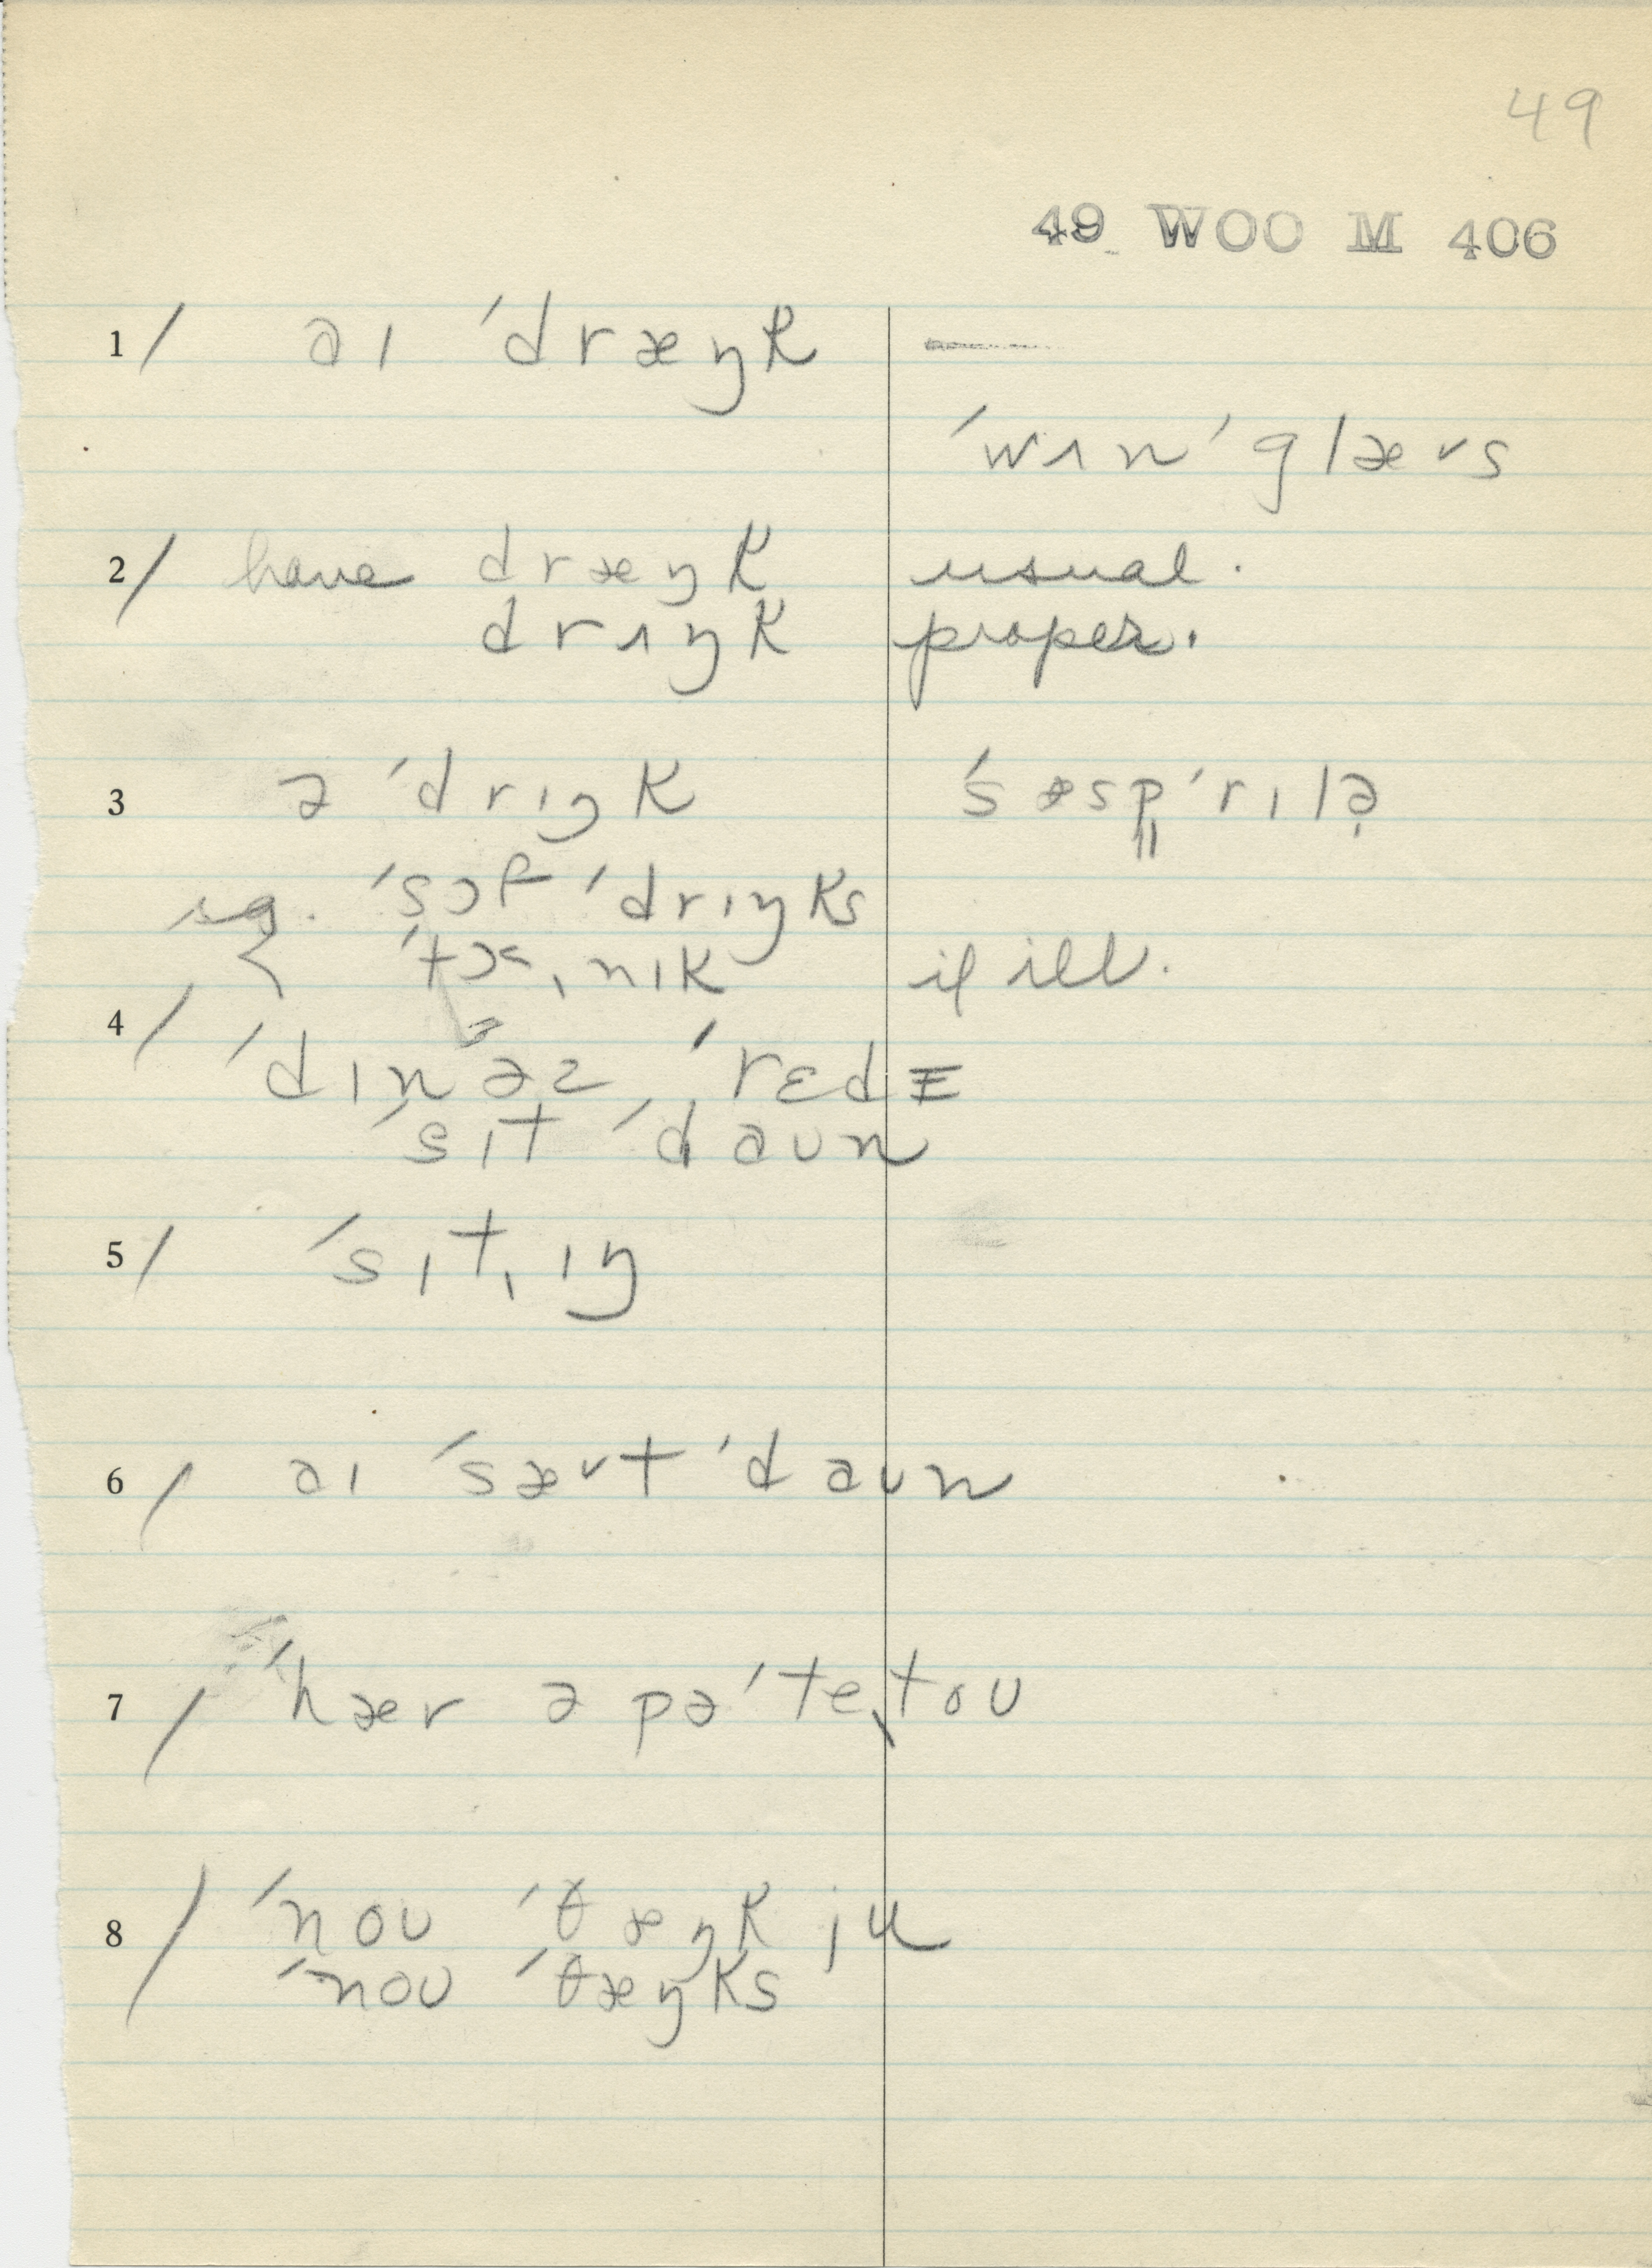 49
49 WOO M 406
1/ aɪ ˈdræŋk
ˈwʌn ˈglæᵛs
2/ have dræŋk usual.
drʌŋk proper.
3 ə ˈdrɪŋk ˈsæsp̳ˈrɪlə̣
sg. ˈsɔf ˈdrɪŋks
< ˈtɔˌnɪk if ill.
4/ ˈdɪnəz ˈrɛdɪ
ˈsɪt ˈdaʊn
5/ ˈsɪtˌɪŋ
6/ aɪ ˈsæᵛt ˈdaʊn
7/ ˈhær ə pəˈteˌtoʊ
8/ ˈnoʊ ˈθæŋk ju
ˈnoʊ ˈθæŋks